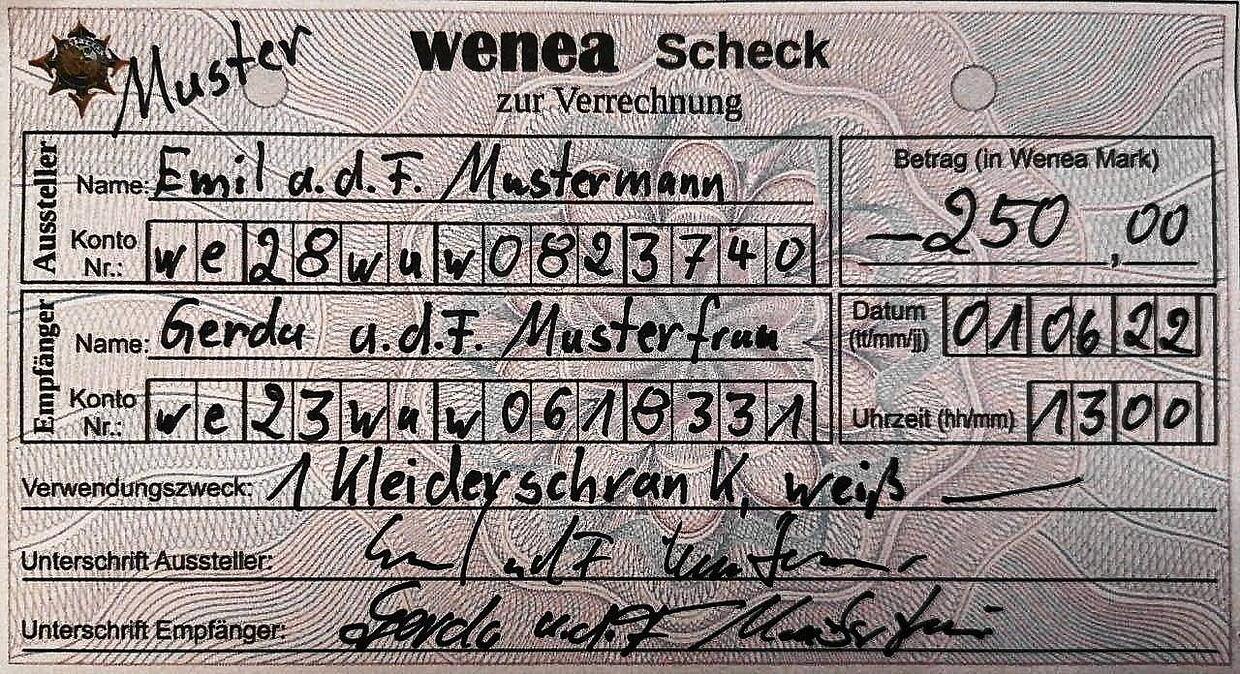 Muster
wenea Scheck
zur Verrechnung
Aussteller
Name: Emil a.d.F. Mustermann
Konto
Nr.: we28wuw0823740
Betrag (in Wenea Mark)
—250,00
Empfänger
Name: Gerda a.d.F. Musterfrau
Konto
Nr.: we23wuw0618331
Datum
(tt/mm/jj) 010622
Uhrzeit (hh/mm) 1300
Verwendungszweck: 1 Kleiderschrank, weiß —
Unterschrift Aussteller:
Unterschrift Empfänger: Gerda